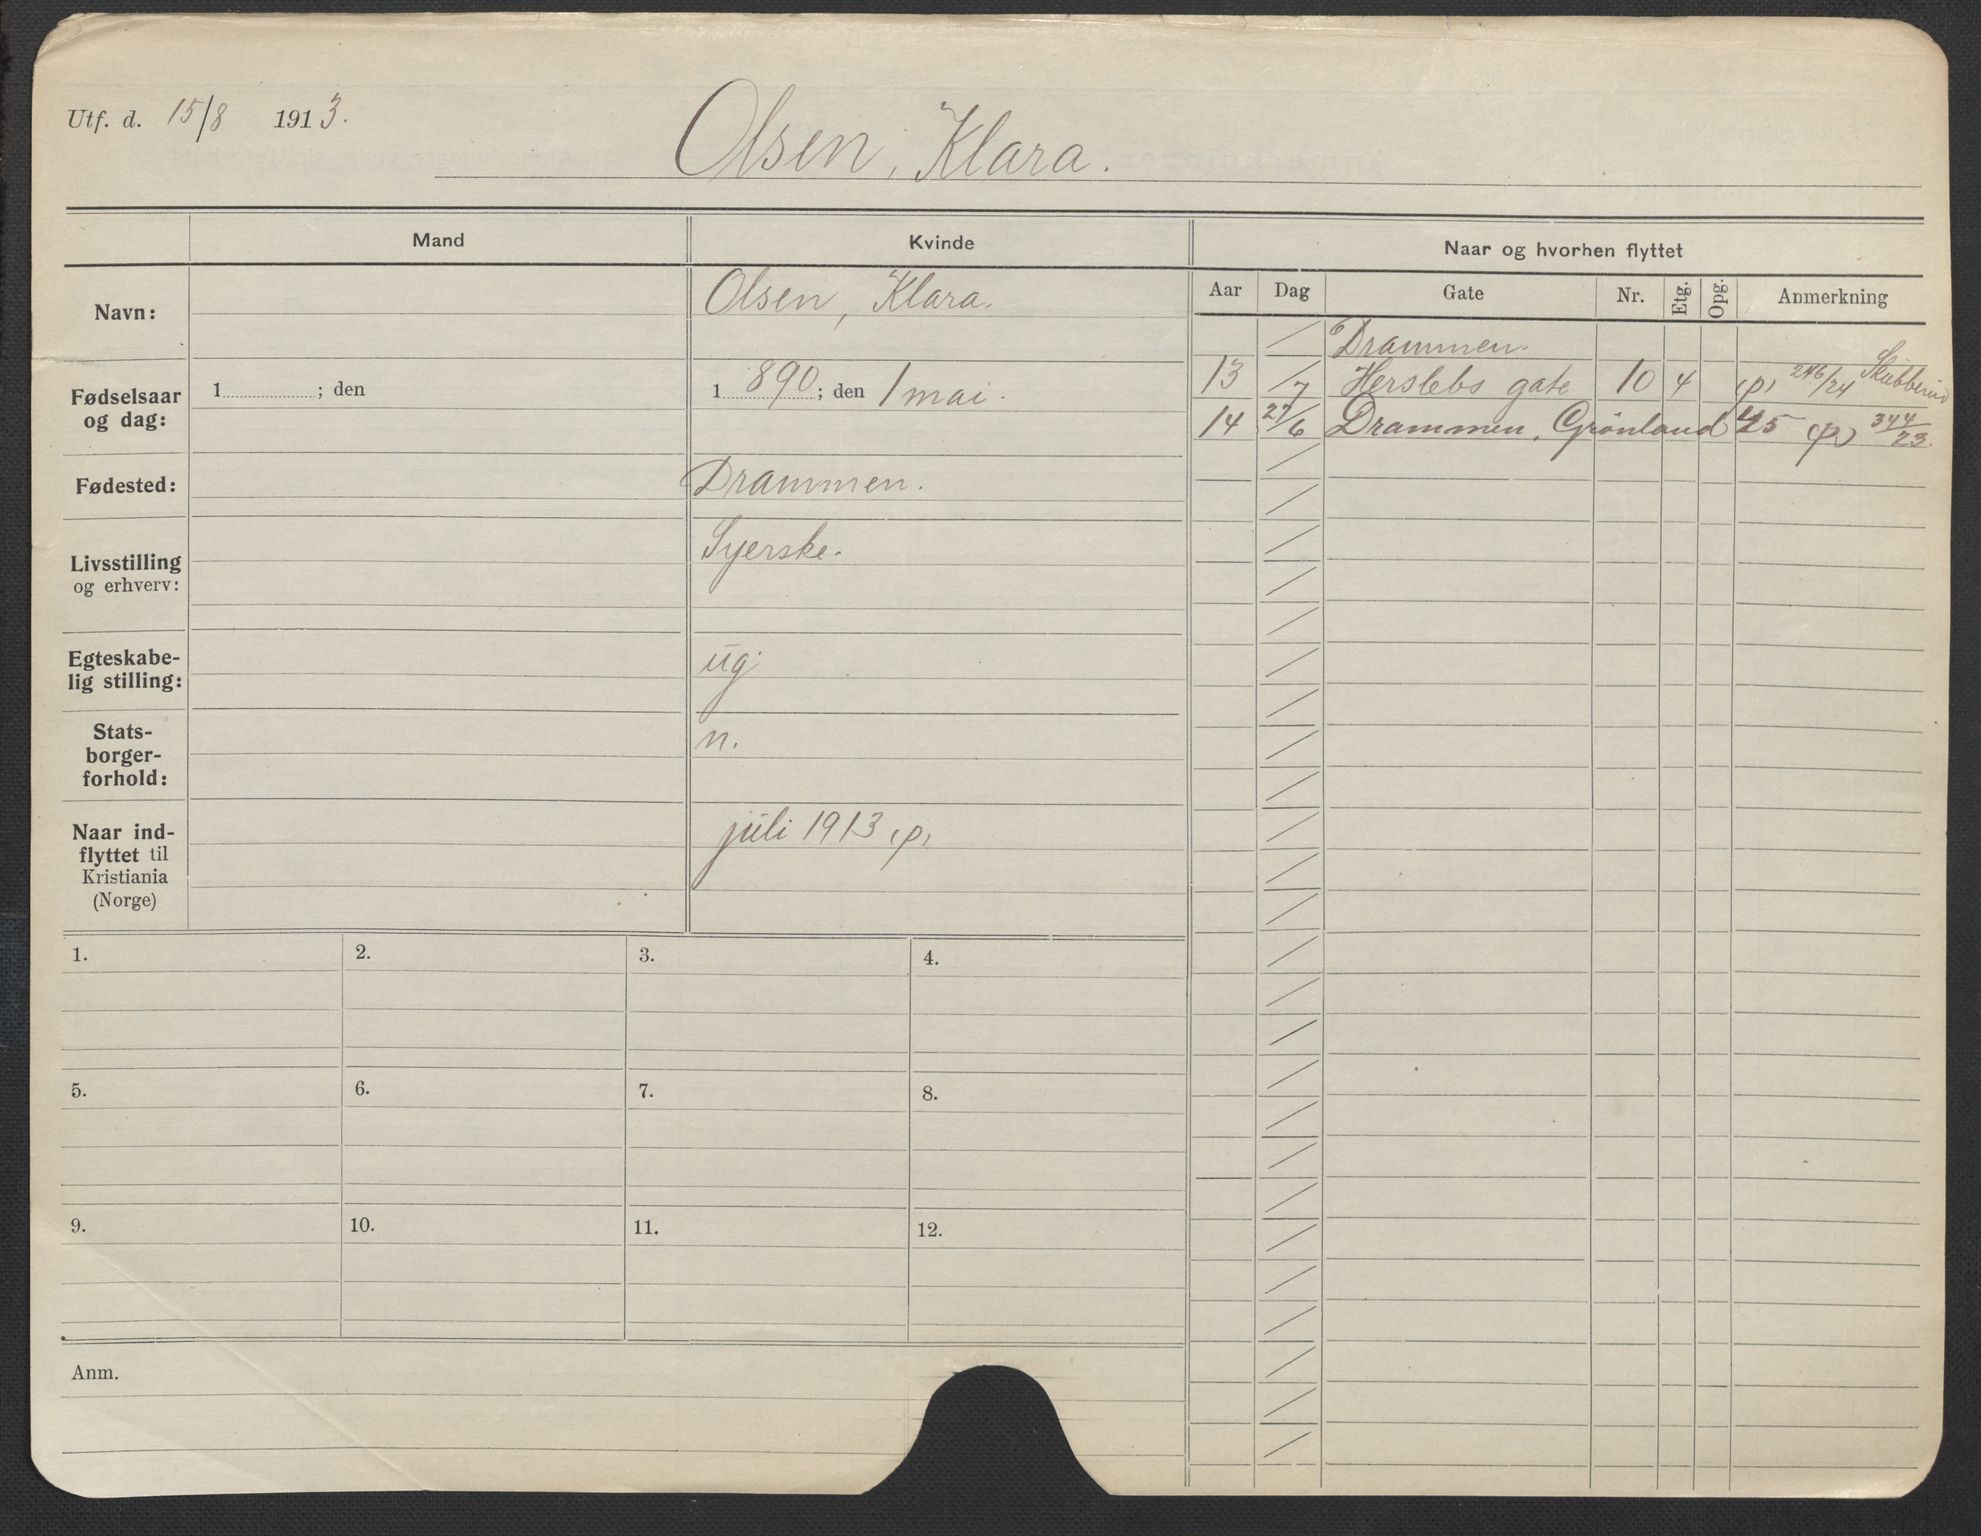 Utf. d. 15/8 1913.
Olsen, Klara.
Mand
Kvinde
Naar og hvorhen flyttet
Aar Dag Gate Nr. Etg. Opg. Anmerkning
Navn:
Olsen, Klara.
Drammen.
13 /7 Herslebs gate 10 4 (p) 246/24 Skabberud
14 27/6 Drammen, Grönland 45 (p) 344/23.
Fødselsaar
og dag:
1 ; den
1 890; den 1 mai.
Fødested:
Drammen.
Livsstilling
og erhverv:
Syerske.
Egteskabe-
lig stilling:
ug.
Stats-
borger-
forhold:
n.
Naar ind-
flyttet til
Kristiania
(Norge)
juli 1913 (p)
1. 2. 3. 4.
5. 6. 7. 8.
9. 10. 11. 12.
Anm.